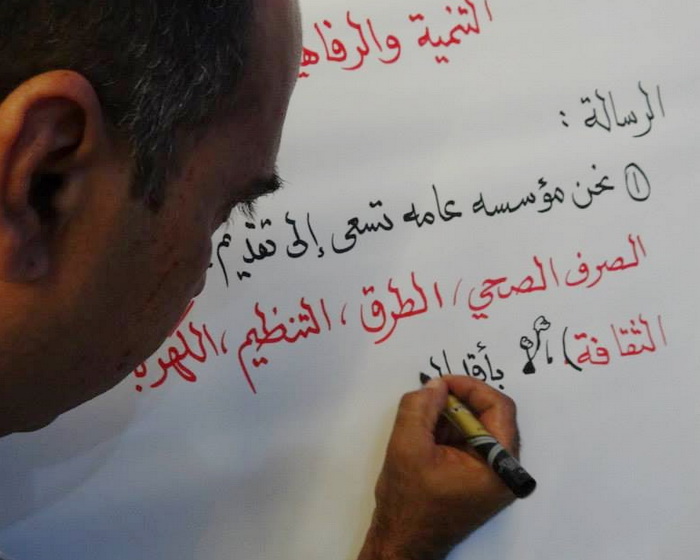 التنمية والرفاهي
الرسالة :
① نحن مؤسسه عامه تسعى إلى تقديم
الصرف الصحي / الطرق ، التنظيم ، الكهرباء
الثقافة )